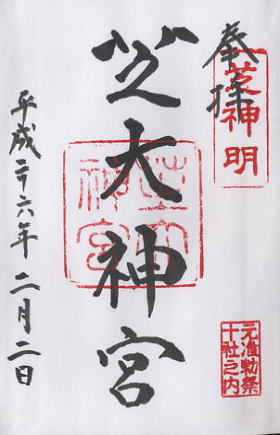 奉拝
芝神明
芝大神宮
芝大神宮
元准勅祭
十社之内
平成二十六年二月二日